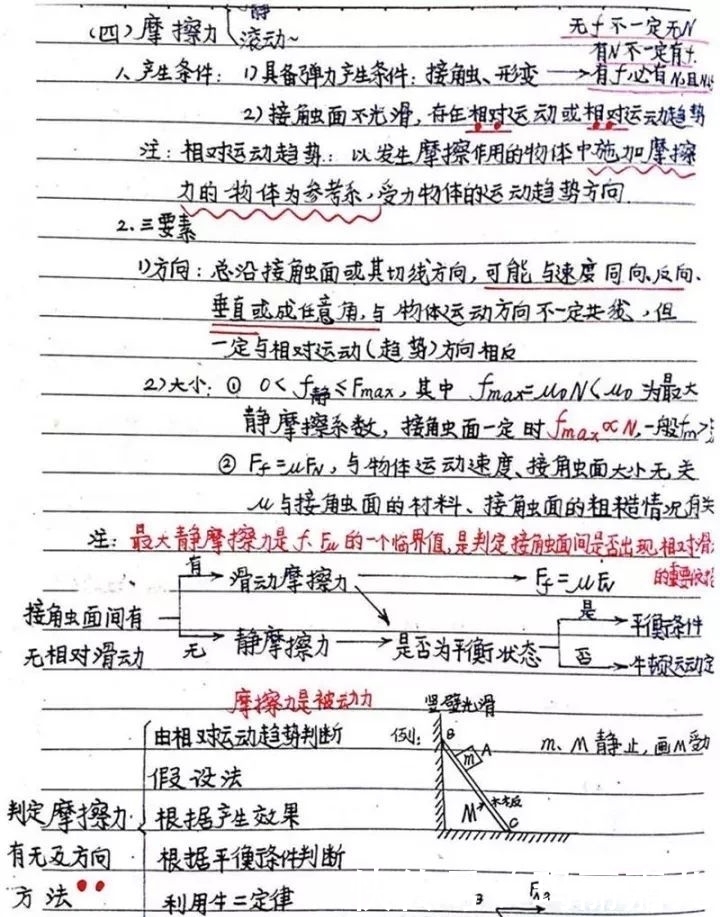 静
(四)摩擦力
滚动~
无f不一定无N
有N不一定有f.
1、产生条件：1)具备弹力产生条件：接触、形变 → 有f必有N
2)接触面不光滑，存在相对运动或相对运动趋势
注：相对运动趋势：以发生摩擦作用的物体中施加摩擦
力的物体为参考系，受力物体的运动趋势方向
2.三要素
1)方向：总沿接触面或其切线方向，可能与速度同向、反向、
垂直或成任意角，与物体运动方向不一定共线，但
一定与相对运动(趋势)方向相反
2)大小：① 0<f静≤Fmax，其中 fmax=μ0N(μ0为最大
静摩擦系数，接触面一定时fmax∝N，一般fm>
② Ff=μFN，与物体运动速度、接触面大小无关
μ与接触面的材料、接触面的粗糙情况有关
注：最大静摩擦力是f、FN的一个临界值，是判定接触面间是否出现相对滑
的重要依据
有 → 滑动摩擦力 → Ff=μFN
接触面间有
无相对滑动
无 → 静摩擦力 → 是否为平衡状态
是 → 平衡条件
否 → 牛顿运动定
摩擦力是被动力
竖壁光滑
由相对运动趋势判断
例：
B
A
m
m、M静止，画M受力
假设法
M
木板
C
判定摩擦力
有无及方向
方法
根据产生效果
根据平衡条件判断
利用牛二定律